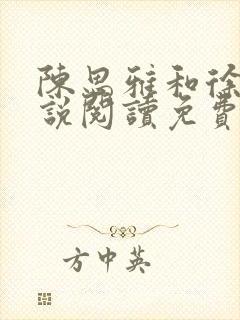 陳思雅和徐
說閱讀免費
方中英